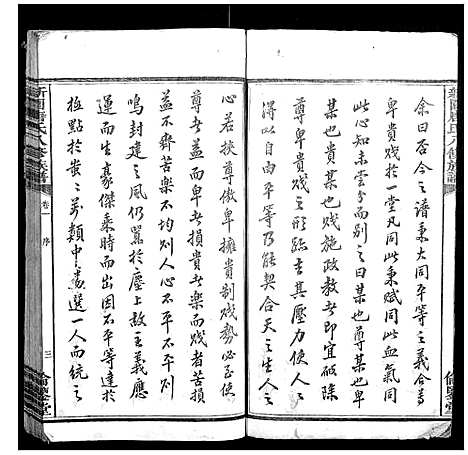 余曰否今之譜秉大同平等之義合尊
卑貴賤於一堂凡同此秉賦同此血氣同
此心知未嘗分而別之曰某也尊某也卑
某也貴某也賤施政教者即宜破除
尊卑貴賤之形跡去其壓力俾
得以自由平等乃能契合天之生人之
心若挾尊傲卑擁貴制賤勢必至使
尊者益而卑者損貴者樂而賤者苦損
益不齊苦樂不均則人心不平不平則
鳴封建之風仍囂於塵上故主義應
運而生豪傑乘時而出因不平等達於
極點於蚩蚩萬類中選一人而統之
卷一
序
三
倫鑒堂